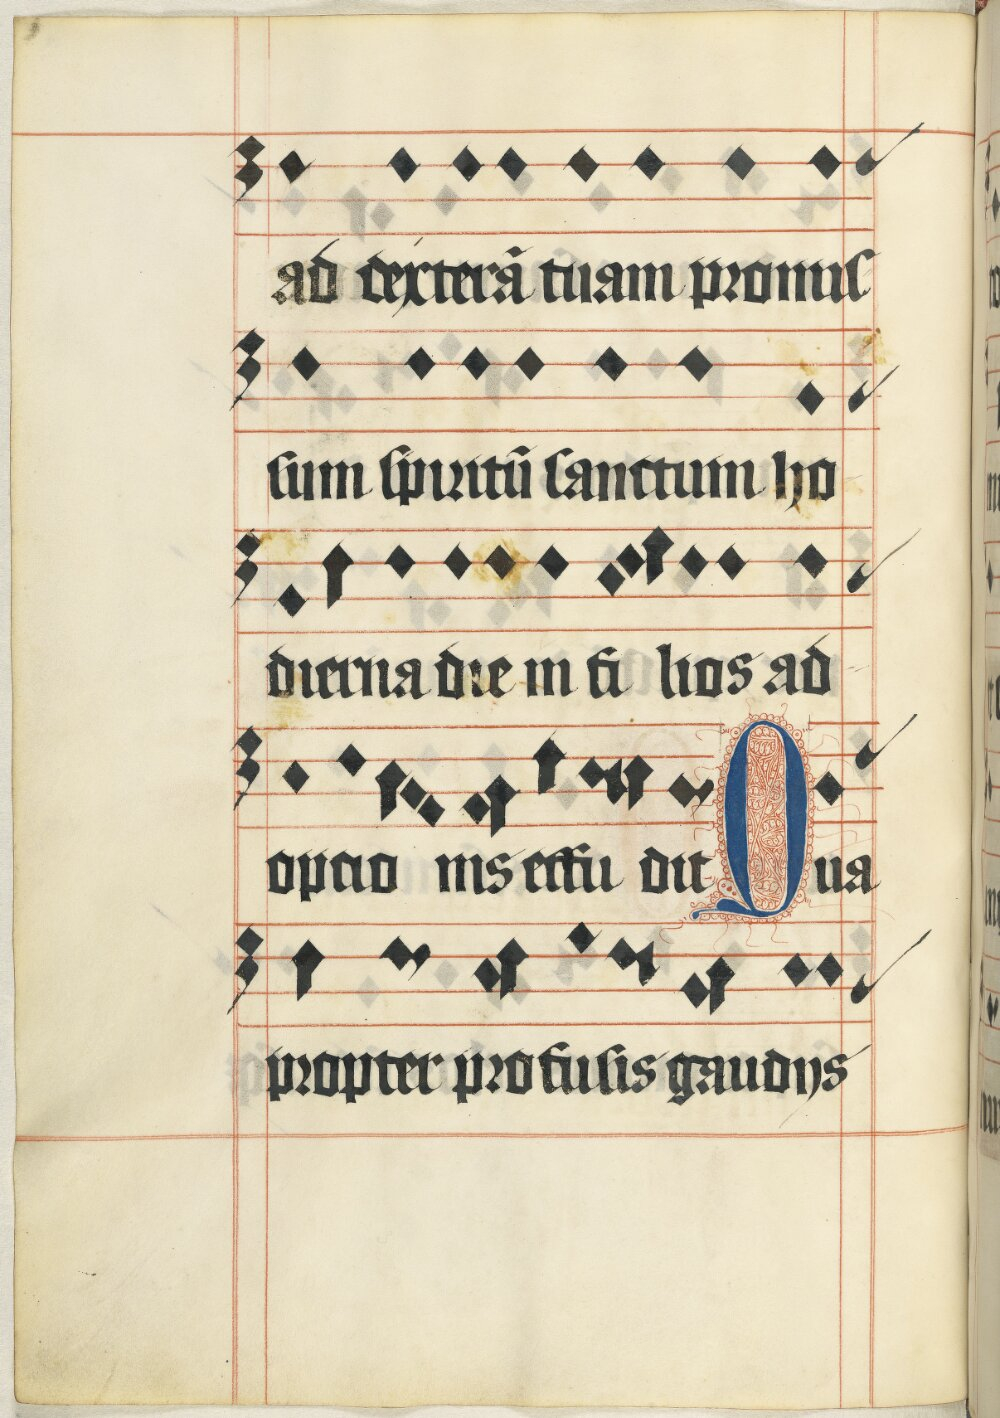 ad dexterã tuam promis
sum spiritũ sanctum ho
dierna die in fi lios ad
opcio nis effu dit Qua
propter profusis gaudijs